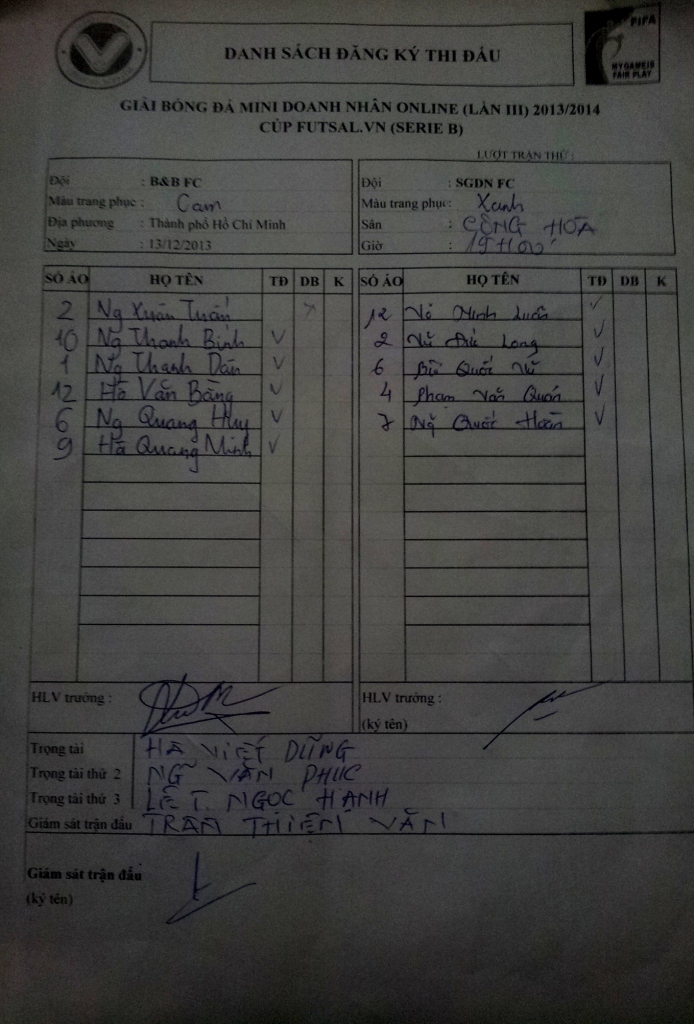 DANH SÁCH ĐĂNG KÝ THI ĐẤU
FIFA
MY GAME IS
FAIR PLAY
GIẢI BÓNG ĐÁ MINI DOANH NHÂN ONLINE (LẦN III) 2013/2014
CÚP FUTSAL.VN (SERIE B)
LƯỢT TRẬN THỨ :
Đội : B&B FC
Màu trang phục : Cam
Địa phương : Thành phố Hồ Chí Minh
Ngày : 13/12/2013
Đội : SGDN FC
Màu trang phục : Xanh
Sân : CỘNG HÒA
Giờ : 19H00'
SỐ ÁO HỌ TÊN TĐ DB K
2 Ng Xuân Tuấn
10 Ng Thanh Bình
1 Ng Thanh Dân
12 Hà Văn Bằng
6 Ng Quang Huy
9 Hà Quang Minh
SỐ ÁO HỌ TÊN TĐ DB K
12 Võ Minh Luân
2 Vũ Long
6 Bùi Quốc Vũ
4 Phạm Văn
7 Ng Quốc Hoàn
HLV trưởng :
HLV trưởng :
(ký tên)
Trọng tài HÀ VIẾT DŨNG
Trọng tài thứ 2 NG VĂN PHÚC
Trọng tài thứ 3 LÊ T. NGỌC HẠNH
Giám sát trận đấu TRẦN THIÊN VĂN
Giám sát trận đấu
(ký tên)